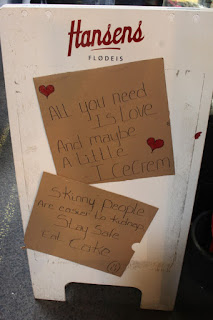 Hansens
FLØDEIS
All you need
Is Love
And maybe
A little
I CeCrem
Skinny People
Are easier to kidnap
Stay Safe
Eat Cake